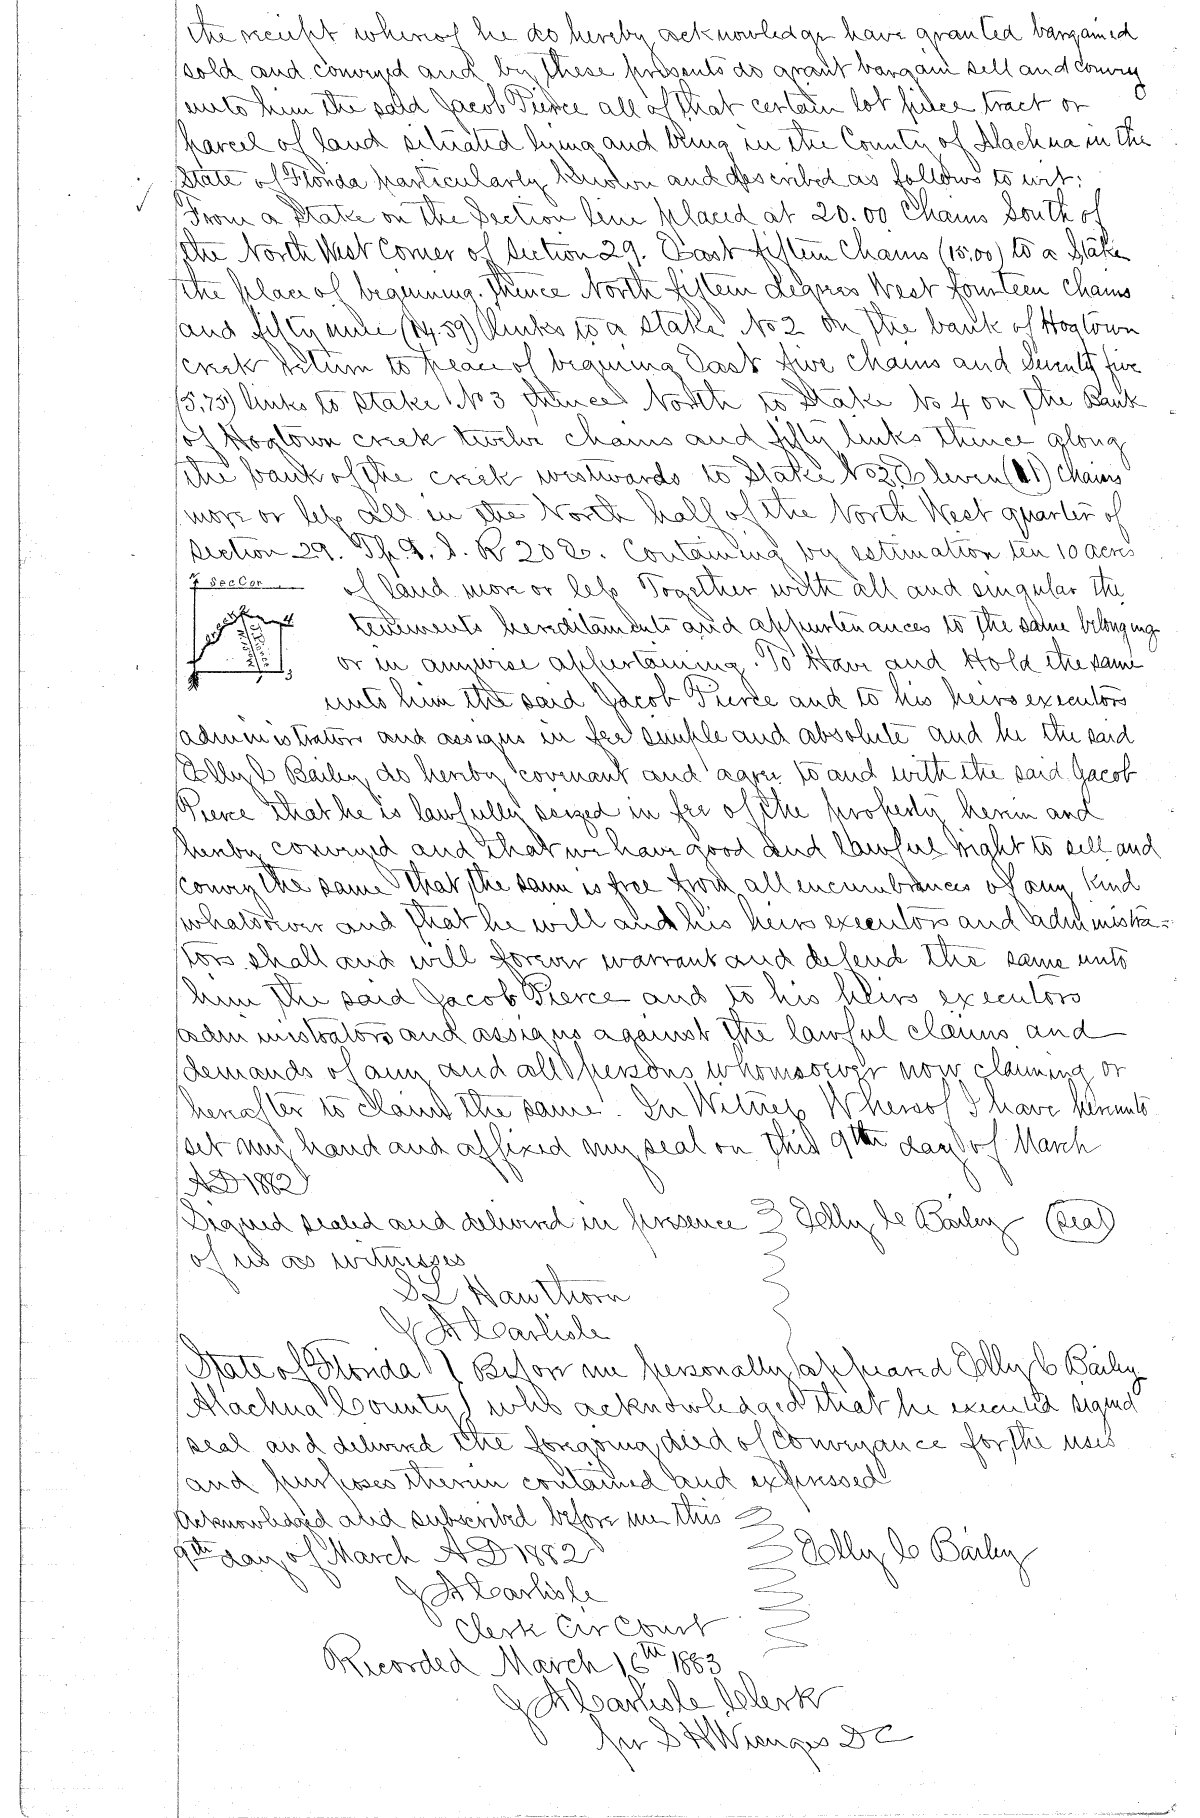 the receipt whereof he do hereby acknowledge have granted bargained
sold and conveyed and by these presents do grant bargain sell and convey
unto him the said Jacob Pierce all of that certain lot piece tract or
parcel of land situated lying and being in the County of Alachua in the
State of Florida particularly known and described as follows to wit:
From a Stake on the Section line placed at 20.00 Chains South of
the North West Corner of Section 29. East fifteen Chains (15.00) to a Stake
the place of begining. Thence North fifteen degrees West fourteen chains
and fifty nine (14.59) links to a stake No 2 on the bank of Hogtown
creek return to place of begining East five chains and Seventy five
(5.75) links to Stake No 3 thence North to Stake No 4 on the Bank
of Hogtown creek twelve chains and fifty links thence along
the bank of the creek westwards to Stake No 2 Eleven (11) chains
more or less all in the North half of the North West quarter of
Section 29. Tp 9. S. R 20 E. Containing by estimation ten 10 acres
Sec Cor
of land more or less Together with all and singular the
tenements hereditaments and appurtenances to the same belonging
or in anywise appertaining. To Have and Hold the same
unto him the said Jacob Pierce and to his heirs executors
administrators and assigns in fee simple and absolute and he the said
Elly C Bailey do hereby covenant and agree to and with the said Jacob
Pierce that he is lawfully seized in fee of the property herein and
hereby conveyed and that we have good and lawful right to sell and
convey the same that the same is free from all encumbrances of any kind
whatsoever and that he will and his heirs executors and administra=
tors shall and will forever warrant and defend the same unto
him the said Jacob Pierce and to his heirs executors
administrators and assigns against the lawful claims and
demands of any and all persons whomsoever now claiming or
hereafter to claim the same. In Witness Whereof I have hereunto
set my hand and affixed my seal on this 9th day of March
AD 1882
Signed sealed and delivered in presence Elly C Bailey (seal)
of us as witnesses
S L Hawthorn
J A Carlisle
State of Florida Before me personally appeared Elly C Bailey
Alachua County who acknowledged that he executed signed
seal and delivered the foregoing deed of conveyance for the uses
and purposes therein contained and expressed
Acknowledged and subscribed before me this
9th day of March AD 1882 Elly C Bailey
J A Carlisle
Clerk Cir Court
Recorded March 16th 1883
J A Carlisle Clerk
per S H Wienges DC